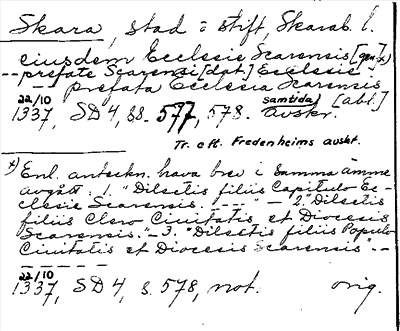 Skara, stad o stift, Skarab. l.
eiusdem Ecclesie Scarensis [gen.] x)
-- prefate Scarensi [dat.] Ecclesie.
— prefata Ecclesia Scarensis [abl.]
22/10 1337, SD 4, ss. 577, 578. samtida avskr.
Tr. eft. Fredenheims avskr.
x) Enl. anteckn. hava brev i samma ämne
avgått: 1. "Dilectis filiis Capitulo Ec-
clesie Scarensis. ---" — 2. "Dilectis
filiis Clero Ciuitatis et Diocesis
Scarensis." — 3. "Dilectis filiis Populo
Ciuitatis et Diocesis Scarensis". --
22/10 1337, SD 4, s. 578, not. orig.